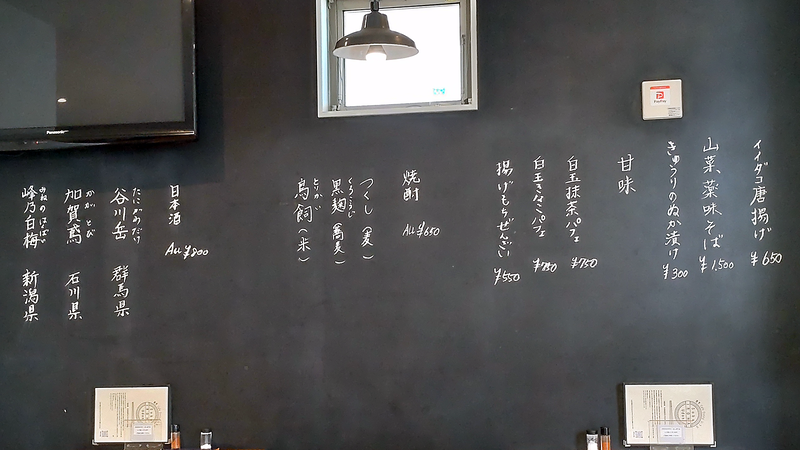 イイダコ唐揚げ ¥650
山菜薬味そば ¥1,500
きゅうりのぬか漬け ¥300
甘味
白玉抹茶パフェ ¥750
白玉きなこパフェ ¥750
揚げもちぜんざい ¥550
焼酎 All ¥650
つくし(麦)
くろこうじ
黒麹(萬美)
とりかい
鳥飼(米)
日本酒 All ¥800
たにがわだけ
谷川岳 群馬県
かが とび
加賀鳶 石川県
みねのはくばい
峰乃白梅 新潟県
Panasonic
PayPay